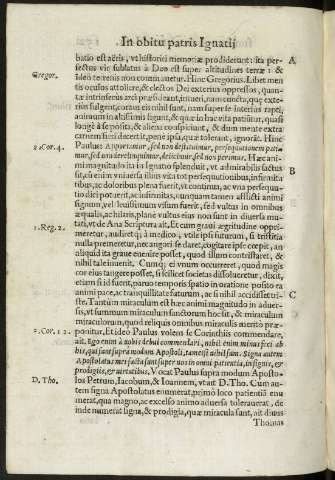 In obitu patris Ignatij
batio est aëris, vt historici memoriæ prodiderunt: ita per- A
fectus vir sublatus à Deo est super altitudines terræ: &
Gregor. ideo terrenis non commouetur. Hinc Gregorius. Libet men
tis oculos attollere, & electos Dei exterius oppressos, quan-
tæ intrinsecus arci præsideant, intueri, nam cuncta, quæ exte-
rius fulgent, coram eis nihil sunt, nam super se interius rapti,
animum in altissimis figunt, & quæ in hac vita patiûtur, quasi
longè à se posita, & aliena conspiciunt, & dum mente extra
carnem fieri decertât, penè ipsa, quæ tolerant, ignorât. Hinc
2. Cor. 4. Paulus: Aporiamur, sed non destituimur, persequutionem patie
mur, sed non derelinquimur, deiicimur, sed non perimus. Hæc ani-
mi magnitudo ita in Ignatio splenduit, vt admirabilis fuisset
sit, cû enim vniuersa illius vita tot persequutionibus, infirmita B
tibus, ac doloribus plena fuerit, vt continua, ac viua persequu-
tio dici potuerit, ac infirmitas, nunquam tamen afflicti animi
signum, vel leuissimum visum fuerit, sed vultus in omnibus
æqualis, ac hilaris, planè vultus eius non sunt in diuersa mu-
1. Reg. 2. tati, vt de Ana Scriptura ait, Et cum graui ægritudine oppri-
meretur, audiretq; à medico, vt letis ipse futurum, si tristitia
nulla premeretur, nec angori se daret, cogitare ipse cœpit, an
aliquid ita graue euenire posset, quod illum contristaret, &
nihil tale inuenit. Cumq; ei vnum occurreret, quod magis
cor eius tangere posset, si scilicet societas dissolueretur, dixit,
etiam si id fuerit, paruo temporis spatio in oratione posito ea
animi pace, ac tranquillitate futurum, ac si nihil accidisset tri- C
ste. Tantûm miraculum est hæc animi magnitudo in aduer-
sis, vt summum miraculum sanctorum hoc sit, & miraculum
miraculorum, quod reliquis omnibus miraculis merito præ-
2. Cor. 12. ponitur, Et ideò Paulus volens se Corinthiis commendare,
ait. Ego enim à vobis debui commendari, nihil enim minus feci ab
his, qui sunt supra modum Apostoli, tametsi nihil sum. Signa autem
Apostolatus mei facta sunt super vos in omni patientia, in signis, & pro-
digiis, & virtutibus. Vocat Paulus supra modum Aposto-
D. Tho. los Petrum, Iacobum, & Ioannem, vt ait D. Tho. Cum au-
tem signa Apostolatus enumerat, primo loco patientiâ enu
merat, qua magno, ac excelso animo aduersa tolerauerat, de
inde numerat signa, & prodigia, quæ miracula sunt, ait diuus
Thomas